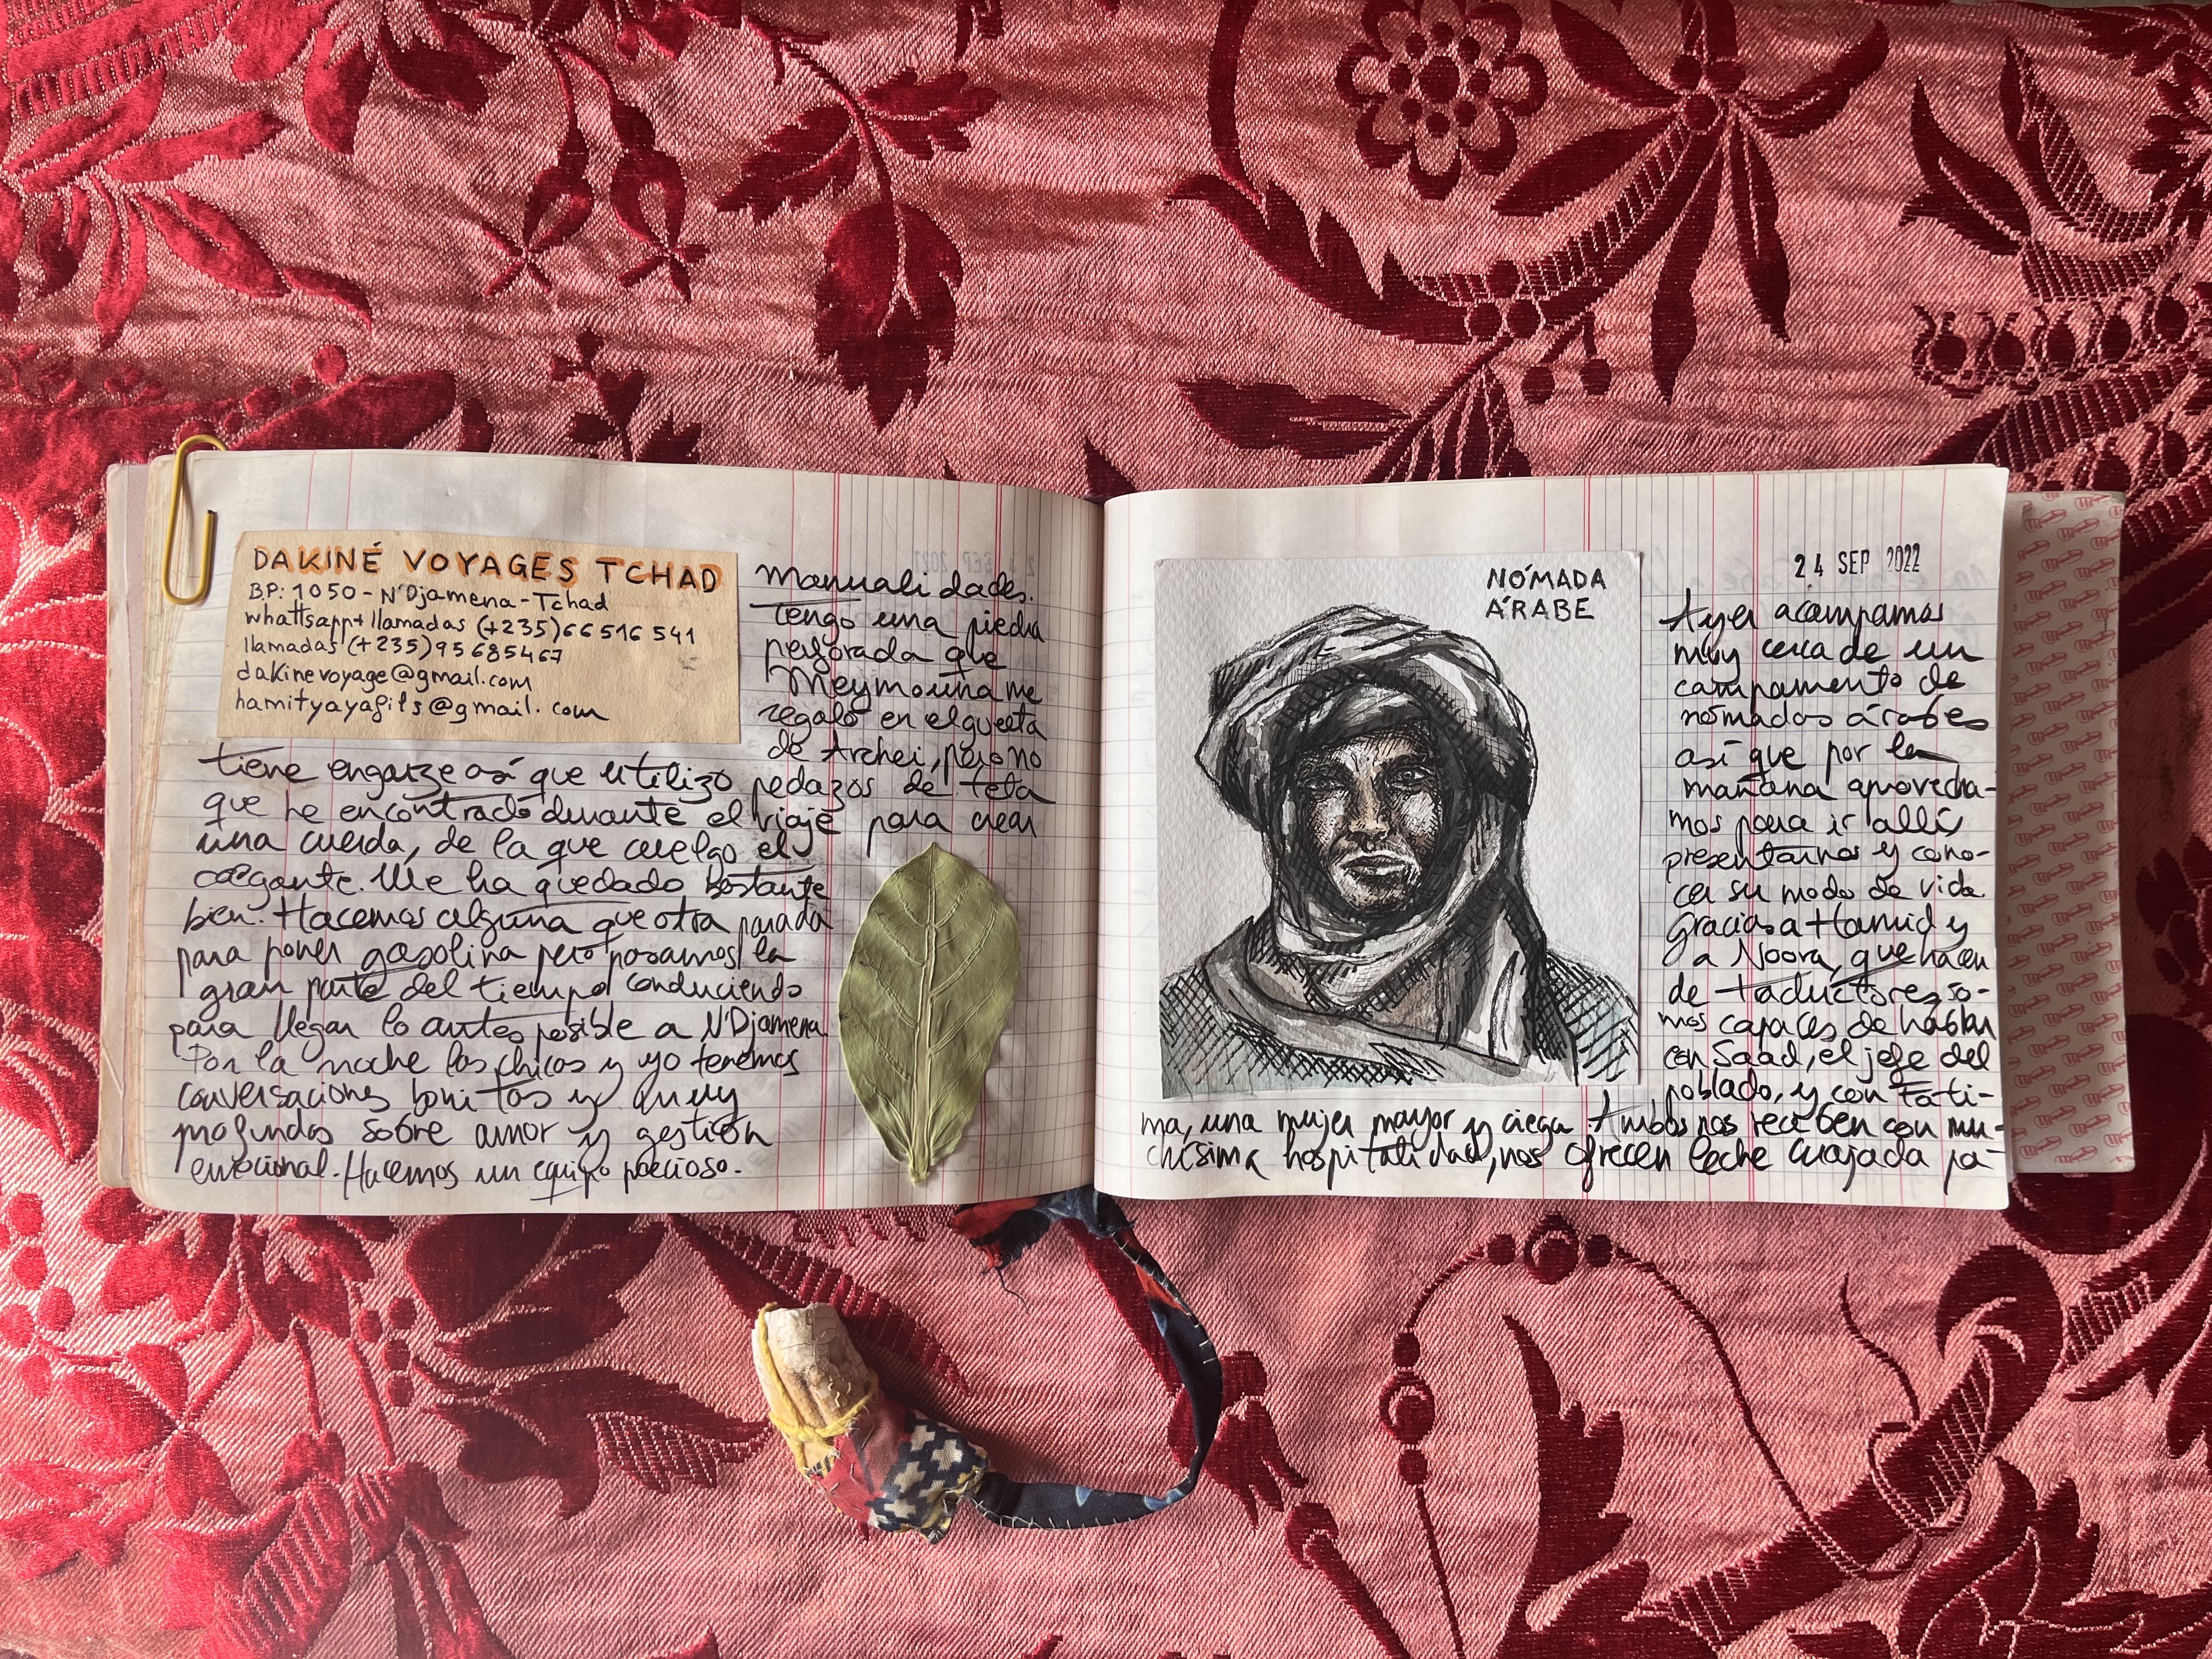 DAKINÉ VOYAGES TCHAD
BP: 1050 - N'Djamena - Tchad
whattsapp+llamadas (+235)66 516 541
llamadas (+235)95685467
dakinevoyage@gmail.com
hamityayafils@gmail.com
Manualidades.
Tengo una piedra
perforada que
Meymouna me
regaló en el guelta
de Archei, pero no
tiene engarze así que utilizo pedazos de tela
que he encontrado durante el viaje para crear
una cuerda, de la que cuelgo el
colgante. Me ha quedado bastante
bien. Hacemos alguna que otra parada
para poner gasolina pero pasamos la
gran parte del tiempo conduciendo
para llegar lo antes posible a N'Djamena.
Por la noche los chicos y yo tenemos
conversaciones bonitas y muy
profundas sobre amor y gestión
emocional. Hacemos un equipo precioso.
NÓMADA
ÁRABE
24 SEP 2022
Ayer acampamos
muy cerca de un
campamento de
nómadas árabes
así que por la
mañana aprovecha-
mos para ir allí,
presentarnos y cono-
cer su modo de vida
Gracias a Hamid y
a Noora, que hacen
de traductores, so-
mos capaces de hablar
con Saad, el jefe del
poblado, y con Fati-
ma, una mujer mayor y ciega. Ambos nos reciben con mu-
chísima hospitalidad, nos ofrecen leche cuajada pa-